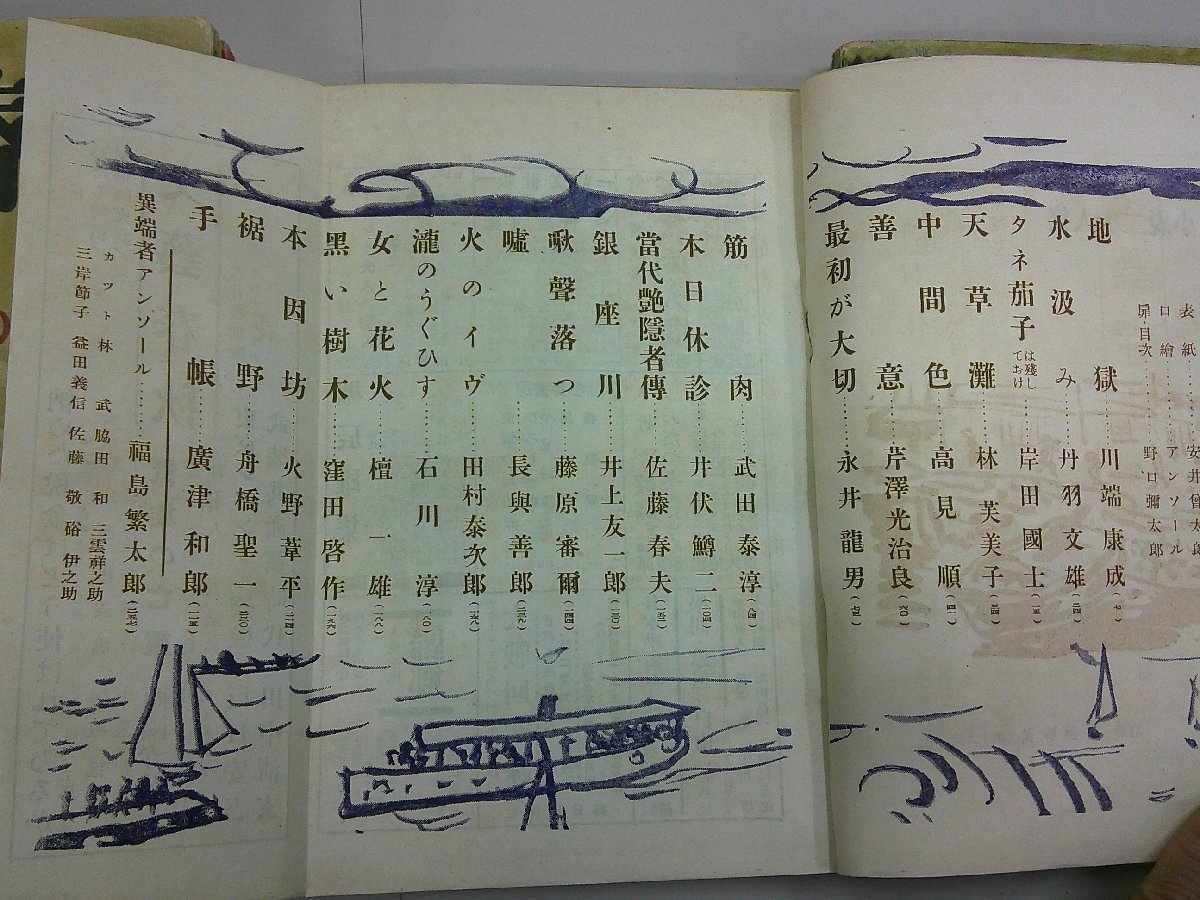 表紙 安井曾太郎
口繪 アンソール
扉・目次 野口彌太郎
地獄……川端康成(七)
水汲み……丹羽文雄(二四)
タネ茄子はてち残しけ……岸田國士
天草灘……林芙美子
中間色……高見順
善意……芹澤光治良(六〇)
最初が大切……永井龍男(七三)
筋肉……武田泰淳(八四)
本日休診……井伏鱒二(一〇四)
當代艶隱者傳……佐藤春夫
銀座川……井上友一郎
啾聲落つ……藤原審爾(一四四)
嘘……長與善郎
火のイヴ……田村泰次郎
瀧のうぐひす……石川淳
女と花火……檀一雄
黑い樹木……窪田啓作(一九六)
本因坊……火野葦平
裾野……舟橋聖一
手帳……廣津和郎
異端者アンソール……福島繁太郎
カット 林武 脇田和 三雲祥之助
三岸節子 益田義信 佐藤敬 硲伊之助